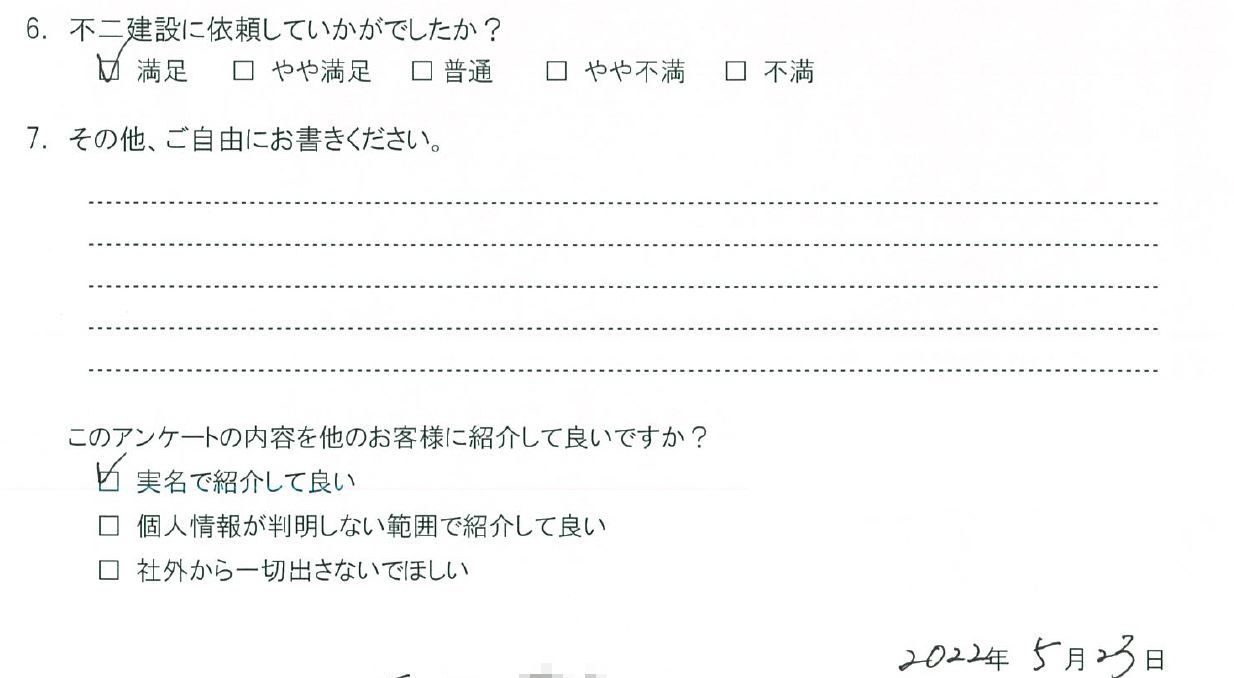 6. 不二建設に依頼していかがでしたか？
☑ 満足 □ やや満足 □ 普通 □ やや不満 □ 不満
7. その他、ご自由にお書きください。
このアンケートの内容を他のお客様に紹介して良いですか？
☑ 実名で紹介して良い
□ 個人情報が判明しない範囲で紹介して良い
□ 社外から一切出さないでほしい
2022年 5月23日